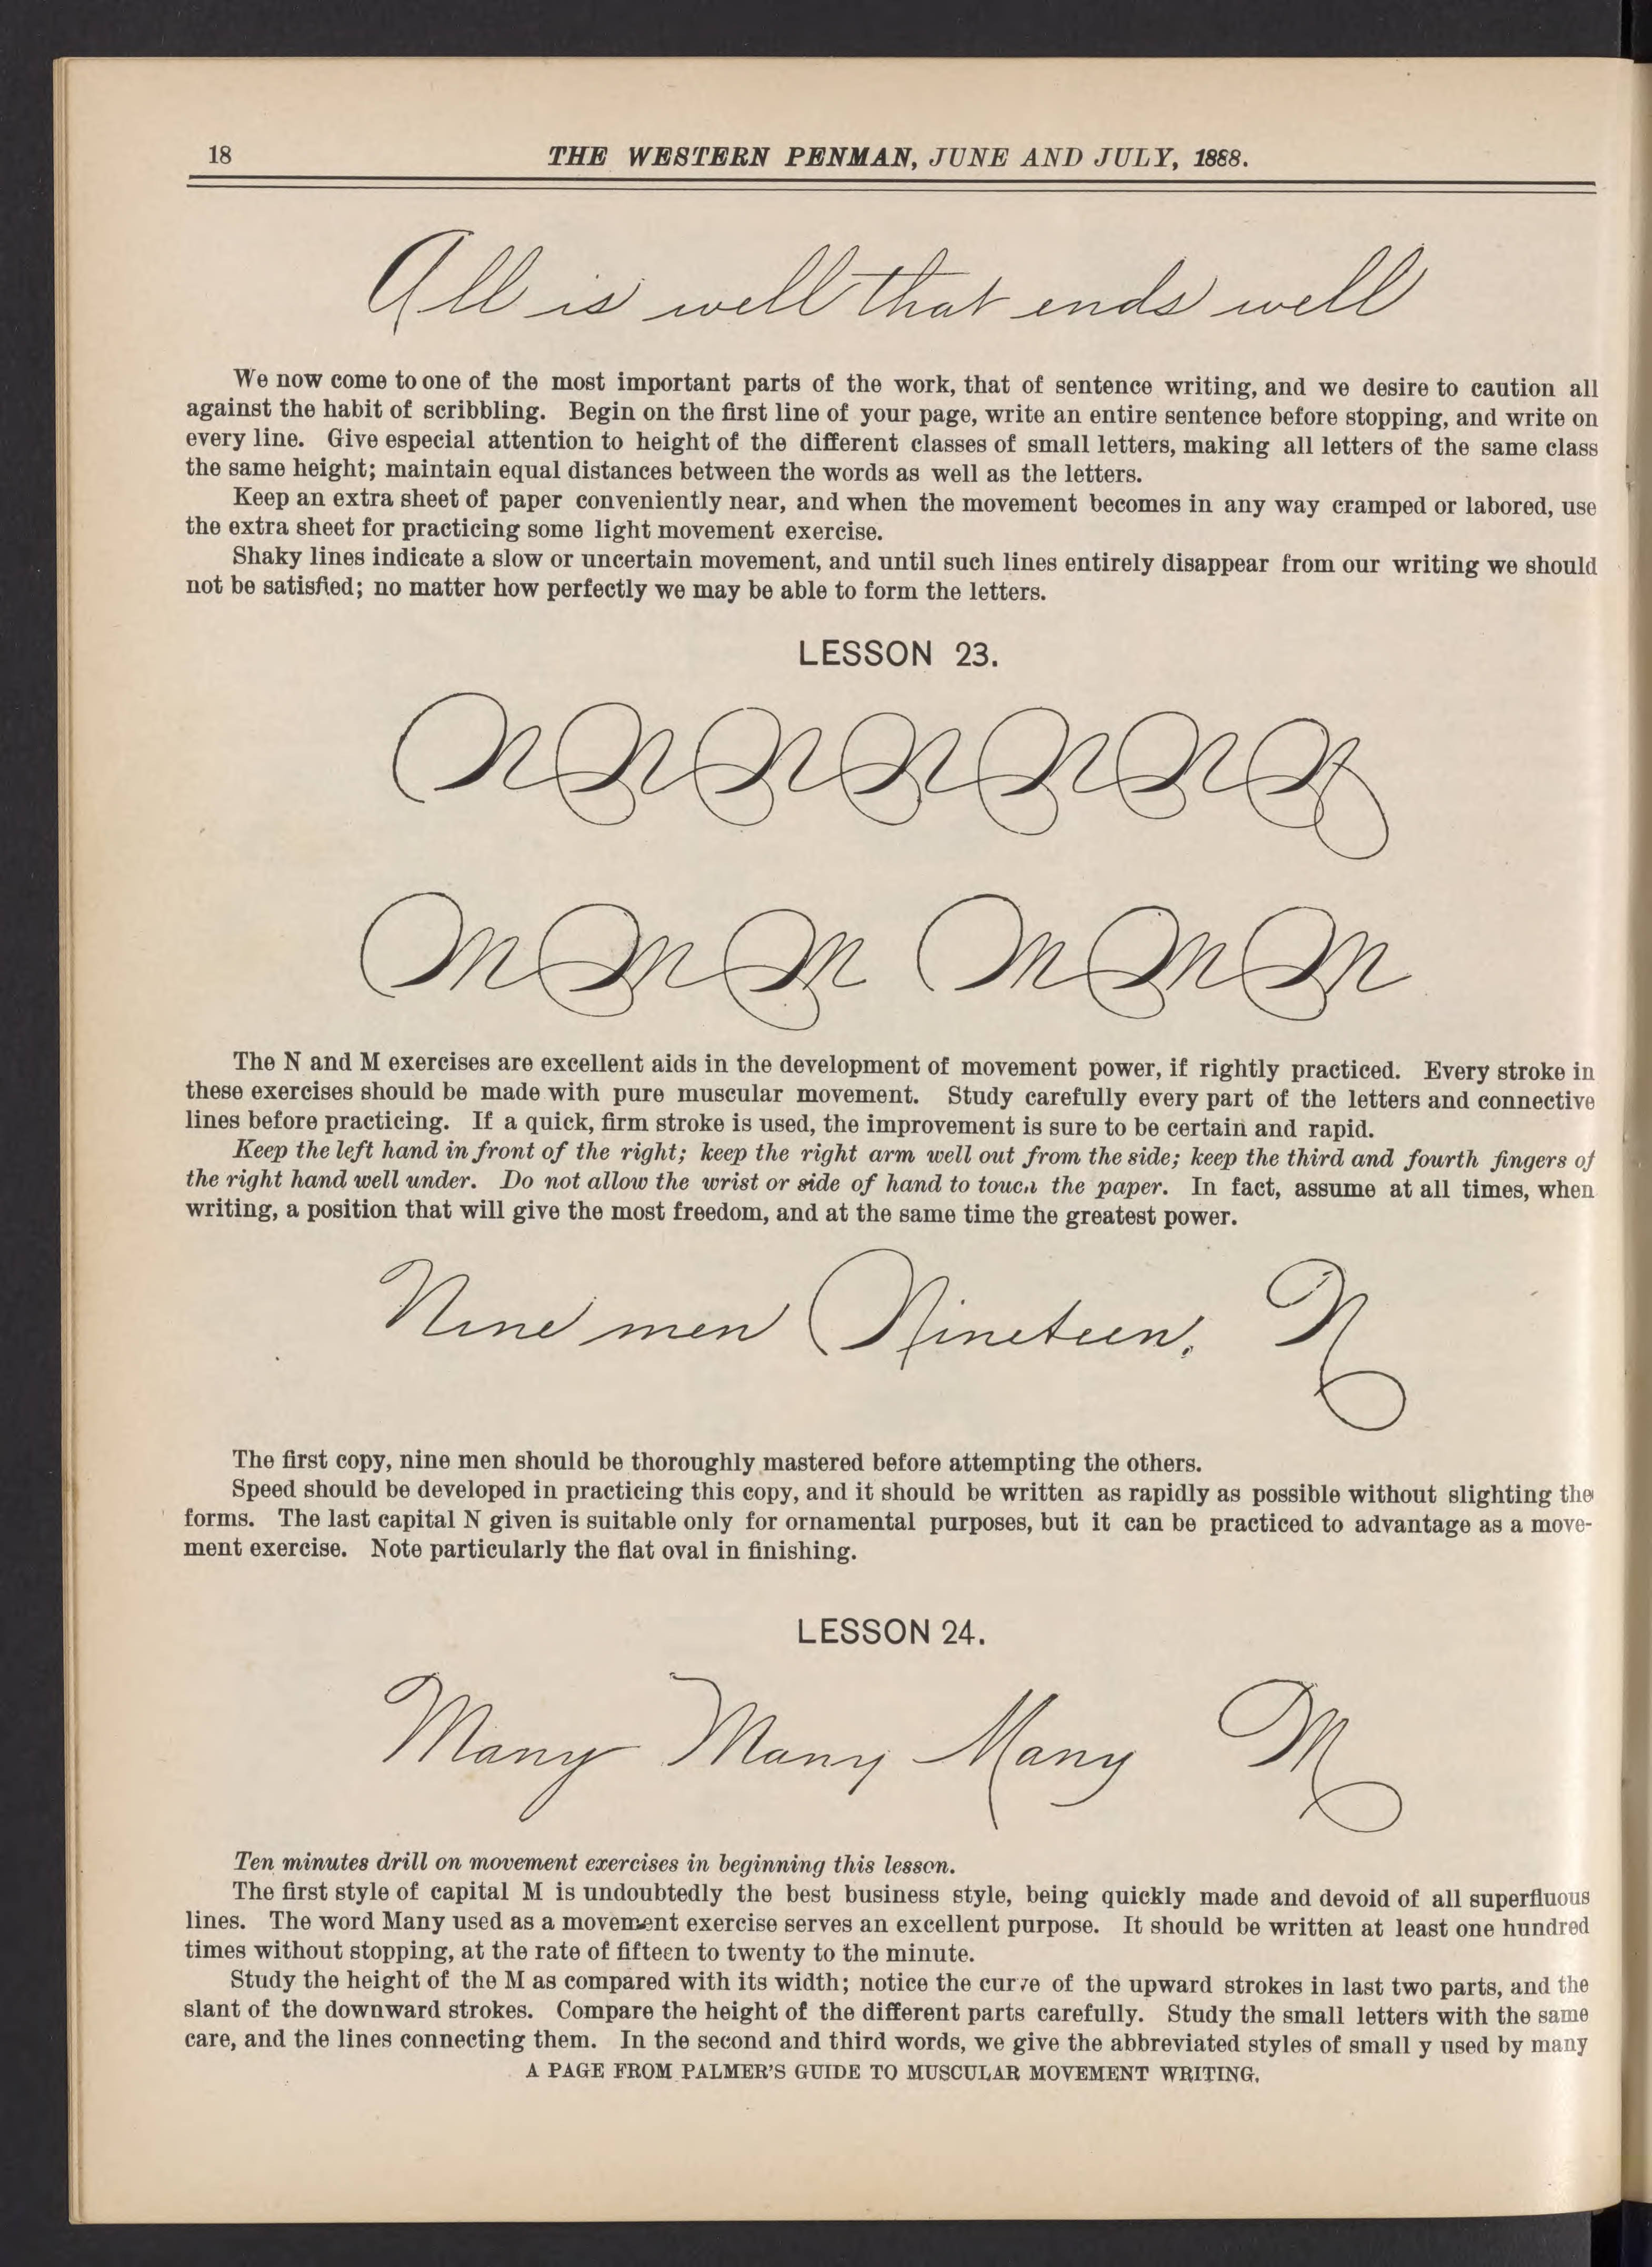 18
THE WESTERN PENMAN, JUNE AND JULY, 1888.
All is well that ends well
We now come to one of the most important parts of the work, that of sentence writing, and we desire to caution all
against the habit of scribbling. Begin on the first line of your page, write an entire sentence before stopping, and write on
every line. Give especial attention to height of the different classes of small letters, making all letters of the same class
the same height; maintain equal distances between the words as well as the letters.
Keep an extra sheet of paper conveniently near, and when the movement becomes in any way cramped or labored, use
the extra sheet for practicing some light movement exercise.
Shaky lines indicate a slow or uncertain movement, and until such lines entirely disappear from our writing we should
not be satisfied; no matter how perfectly we may be able to form the letters.
LESSON 23.
N N N N N N N
M M M M M M
The N and M exercises are excellent aids in the development of movement power, if rightly practiced. Every stroke in
these exercises should be made with pure muscular movement. Study carefully every part of the letters and connective
lines before practicing. If a quick, firm stroke is used, the improvement is sure to be certain and rapid.
Keep the left hand in front of the right; keep the right arm well out from the side; keep the third and fourth fingers of
the right hand well under. Do not allow the wrist or side of hand to touch the paper. In fact, assume at all times, when
writing, a position that will give the most freedom, and at the same time the greatest power.
Nine men Nineteen, N
The first copy, nine men should be thoroughly mastered before attempting the others.
Speed should be developed in practicing this copy, and it should be written as rapidly as possible without slighting the
forms. The last capital N given is suitable only for ornamental purposes, but it can be practiced to advantage as a move-
ment exercise. Note particularly the flat oval in finishing.
LESSON 24.
Many Many Many M
Ten minutes drill on movement exercises in beginning this lesson.
The first style of capital M is undoubtedly the best business style, being quickly made and devoid of all superfluous
lines. The word Many used as a movement exercise serves an excellent purpose. It should be written at least one hundred
times without stopping, at the rate of fifteen to twenty to the minute.
Study the height of the M as compared with its width; notice the curve of the upward strokes in last two parts, and the
slant of the downward strokes. Compare the height of the different parts carefully. Study the small letters with the same
care, and the lines connecting them. In the second and third words, we give the abbreviated styles of small y used by many
A PAGE FROM PALMER'S GUIDE TO MUSCULAR MOVEMENT WRITING.